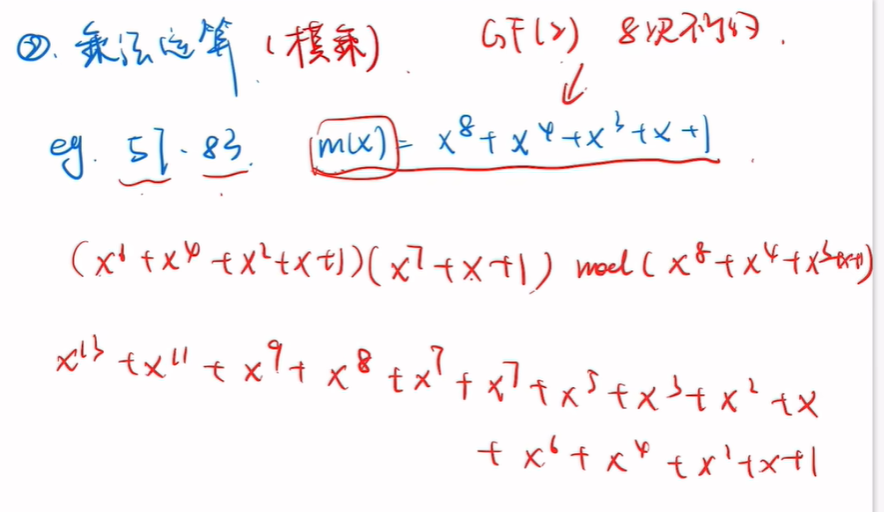 ②. 乘法运算 (模乘) GF(2) 8次不可约.
eg. 57 · 83. m(x) = x⁸ + x⁴ + x³ + x + 1
(x⁶ + x⁴ + x² + x + 1)(x⁷ + x + 1) mod (x⁸ + x⁴ + x³+x+1)
x¹³ + x¹¹ + x⁹ + x⁸ + x⁷ + x⁷ + x⁵ + x³ + x² + x
+ x⁶ + x⁴ + x² + x + 1